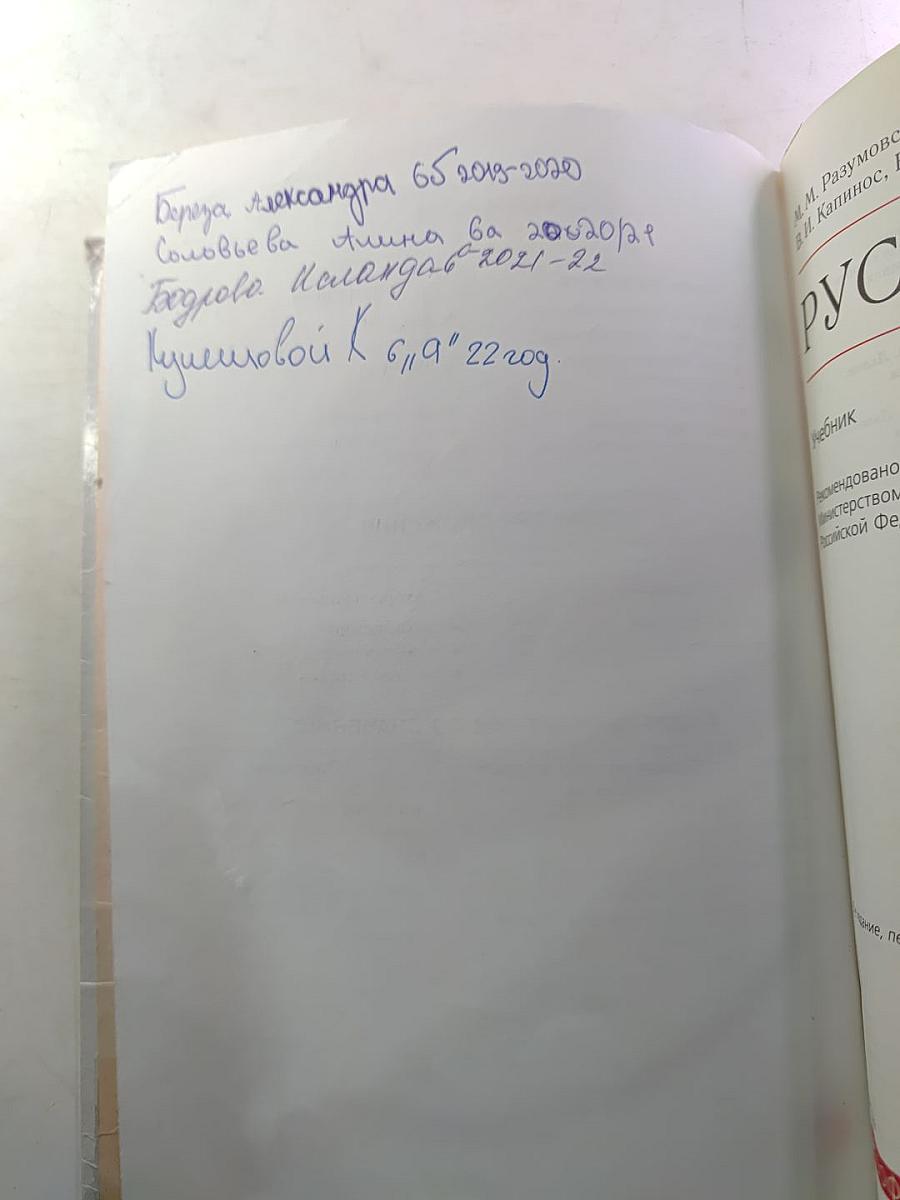 Береза Александра 6б 2019-2020
Соловьева Алина 6а 2020/21
Бодрова 6а 2021-22
К 6 „А" 22 год.
М.М. Разумовс
В.И. Капинос,
РУС
Учебник
Рекомендовано
Министерством
Российской Фе